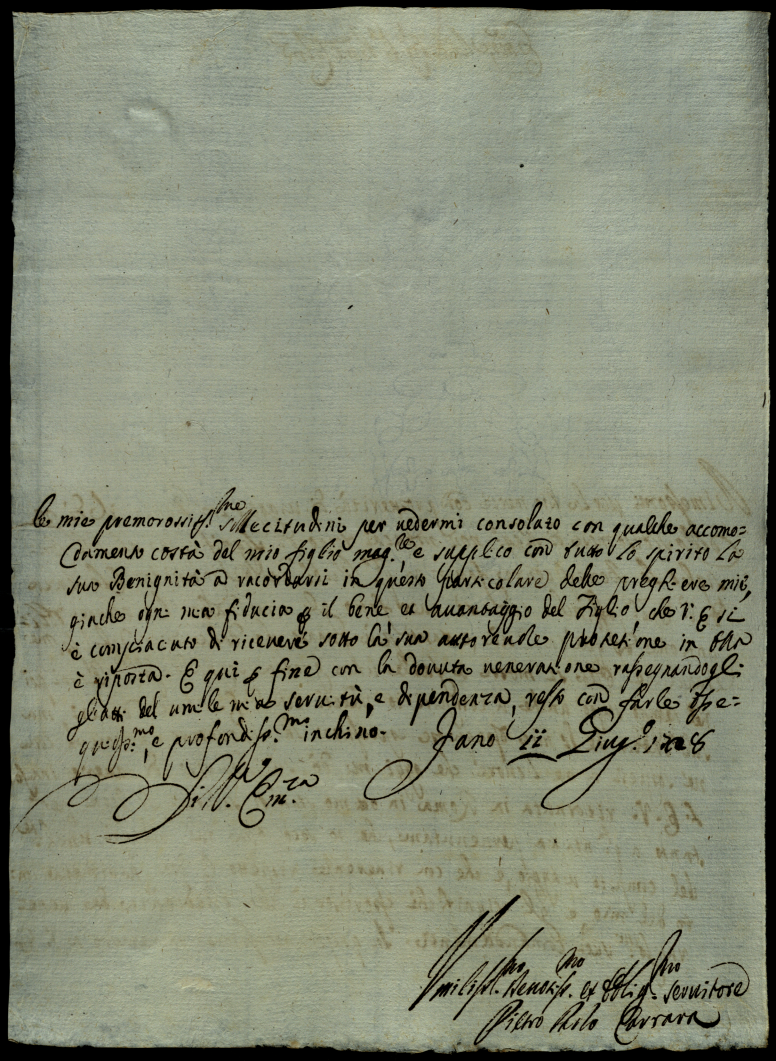 le mie premorosiss.me sollecitudini per uedermi consolato con qualche accomo=
damento costà del mio figlio mag.re, e supplico con tutto lo spirito la
sua Benignità a racordarsi in questo particolare delle preghiere mie,
giache ogni mia fiducia p il bene et auantaggio del Figlio, che V. E. si
è compiaciuto di riceuere sotto la sua autoreuole protetione in Ella
è riposta. E qui p fine con la douuta ueneratione rassegnandogli
gl'atti del umile mia seruitù, e dipendenza, resto con farle osse=
quiosiss.mo, e profondiss.mo inchino. Fano 11 Giug.o 1728
Di V.a Em.za
Vmiliss.mo Deuotiss.mo et Oblig.mo seruitore
Pietro Paolo Carrara